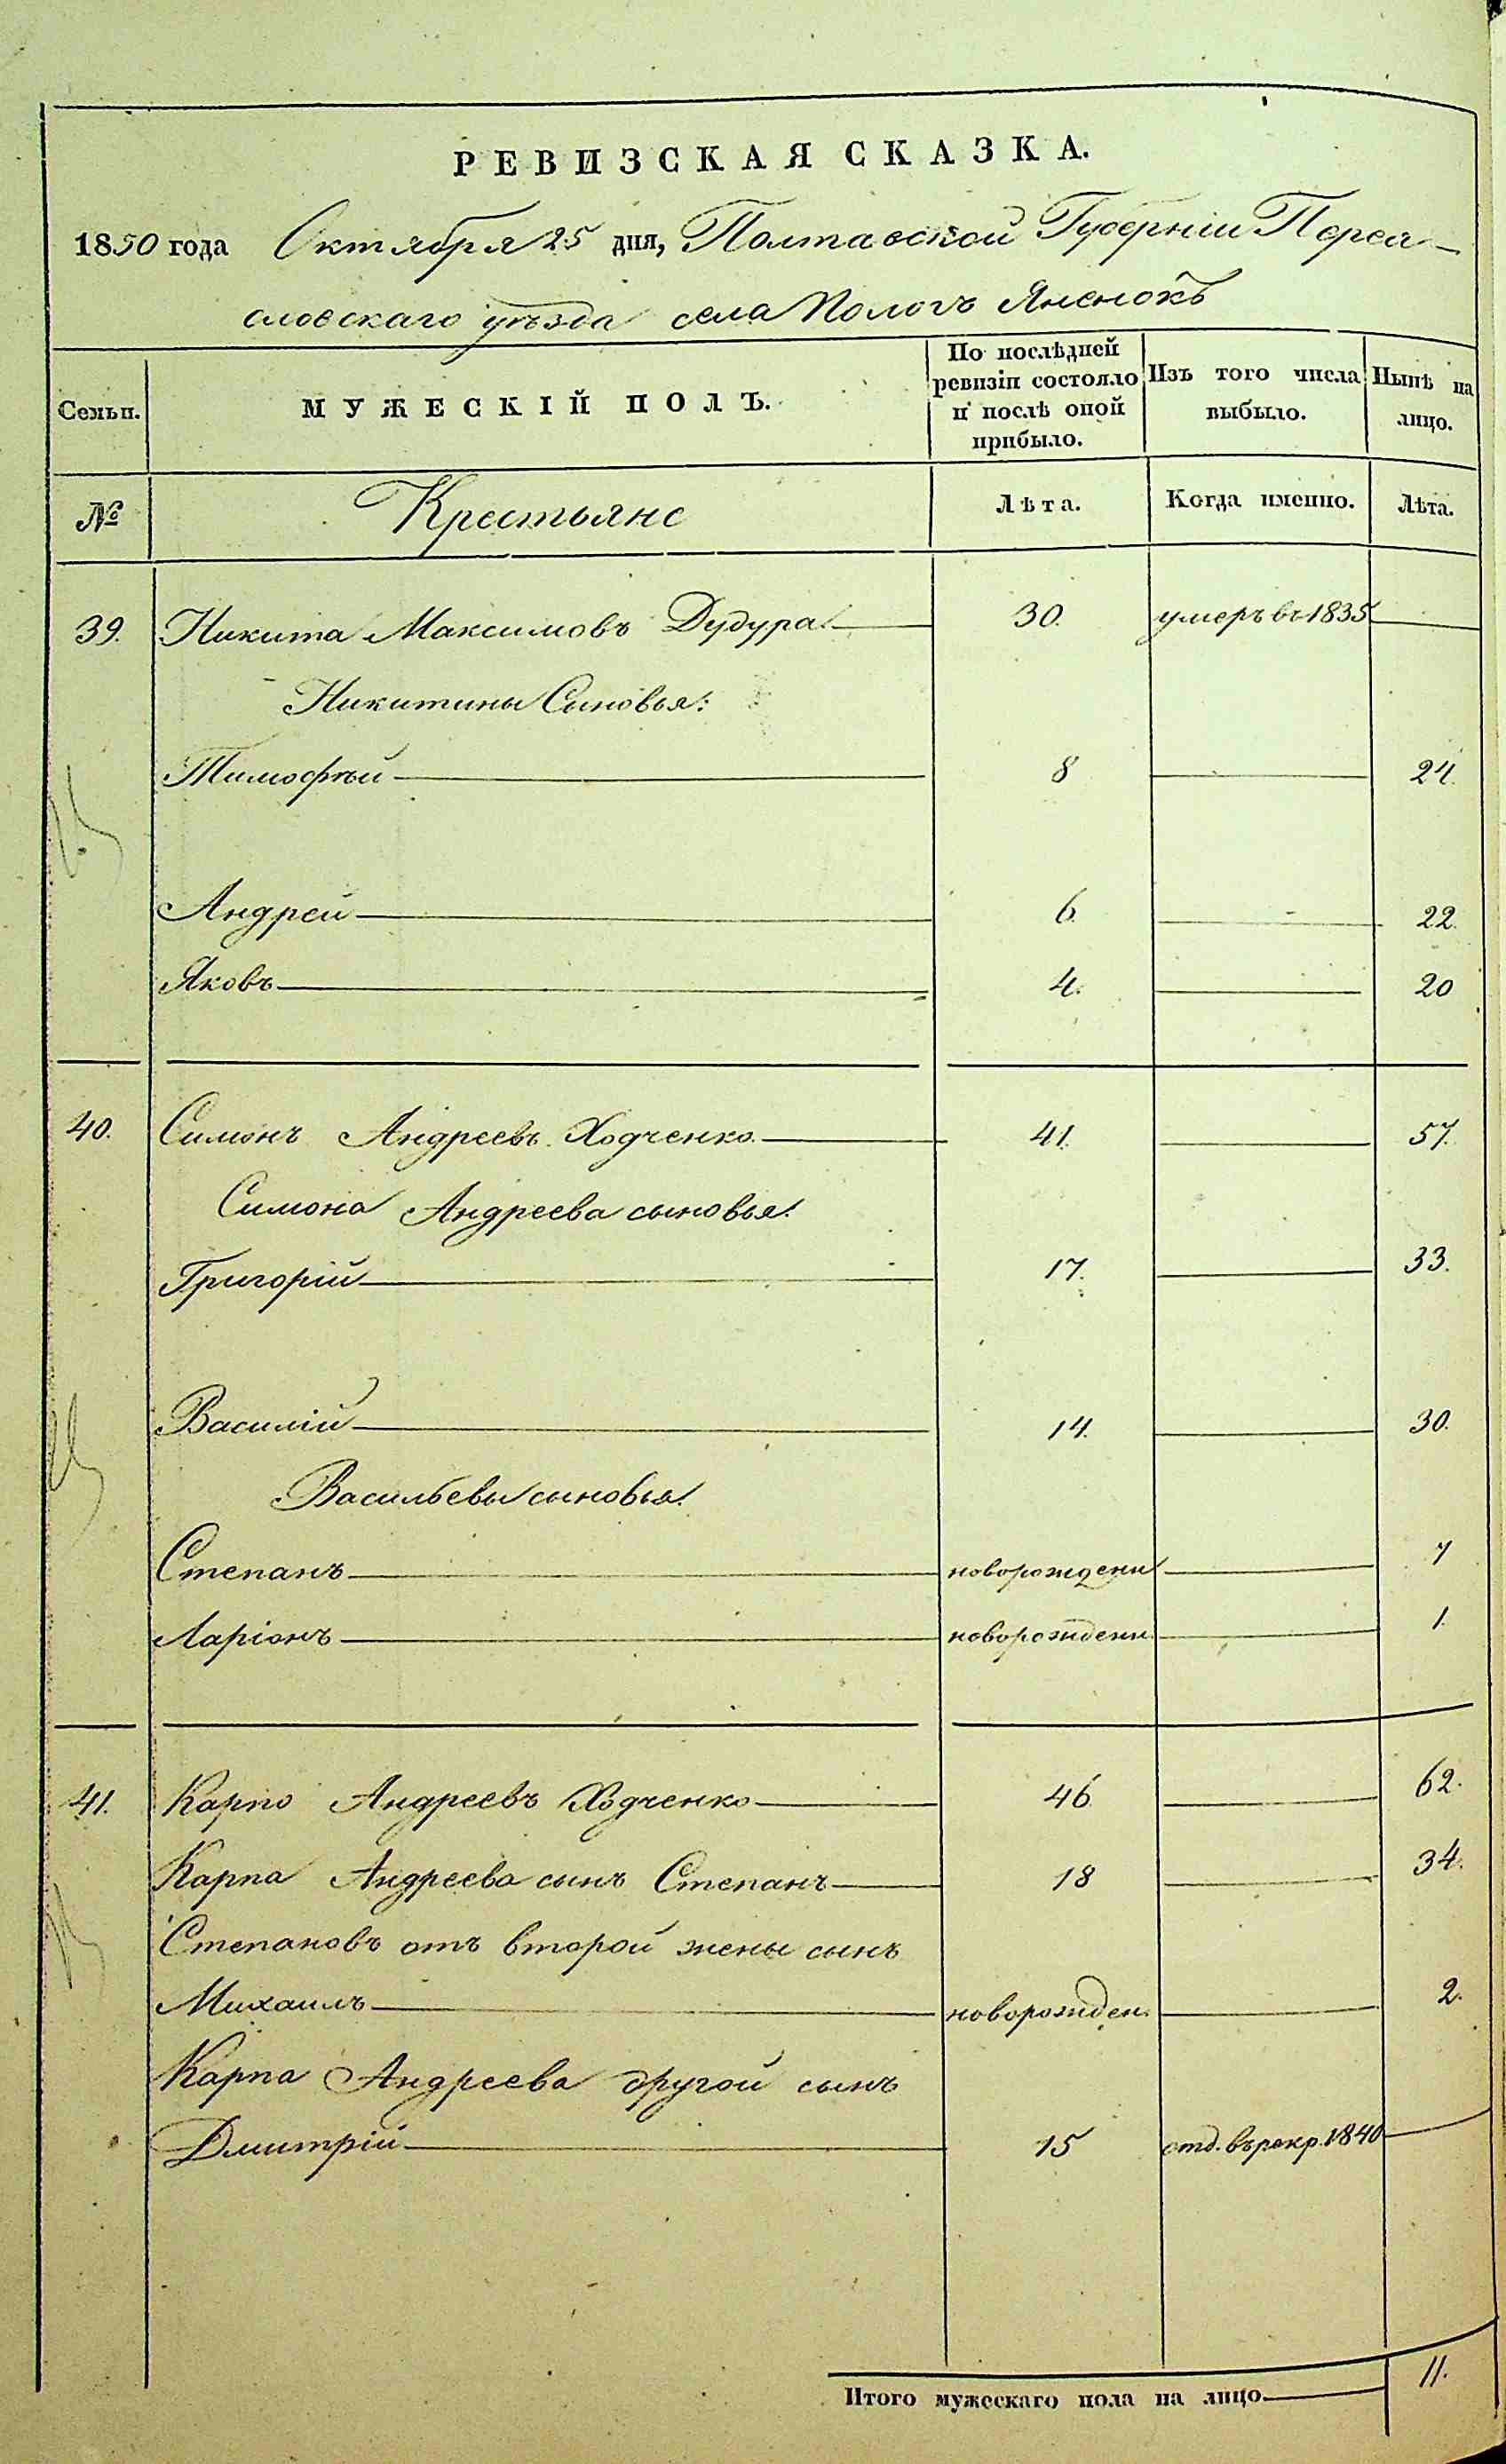 РЕВИЗСКАЯ СКАЗКА.
1850 года Октября 25 дня, Полтавской Губерніи Перея-
словскаго уѣзда села Пологъ Яненокъ
Семьи. МУЖЕСКІЙ ПОЛЪ. По послѣдней ревизіи состояло и послѣ оной прибыло. Изъ того числа выбыло. Нынѣ на лицо.
№ Крестьяне Лѣта. Когда именно. Лѣта.
39. Никита Максимовъ Дудура 30. умеръ въ 1835
Никитины Сыновья:
Тимофѣй 8 24.
Андрей 6. 22.
Яковъ 4. 20
40. Симонъ Андреевъ Ходченко 41. 57.
Симона Андреева сыновья:
Григорій 17. 33.
Василій 14. 30.
Васильевы сыновья:
Степанъ новорожденн 7
Ларіонъ новорожденн 1.
41. Карпо Андреевъ Ходченко 46. 62.
Карпа Андреева сынъ Степанъ 18 34.
Степановъ отъ второй жены сынъ
Михаилъ новорожден. 2.
Карпа Андреева другой сынъ
Дмитрій 15 отд. въ рекр. 1840
Итого мужескаго пола на лицо 11.